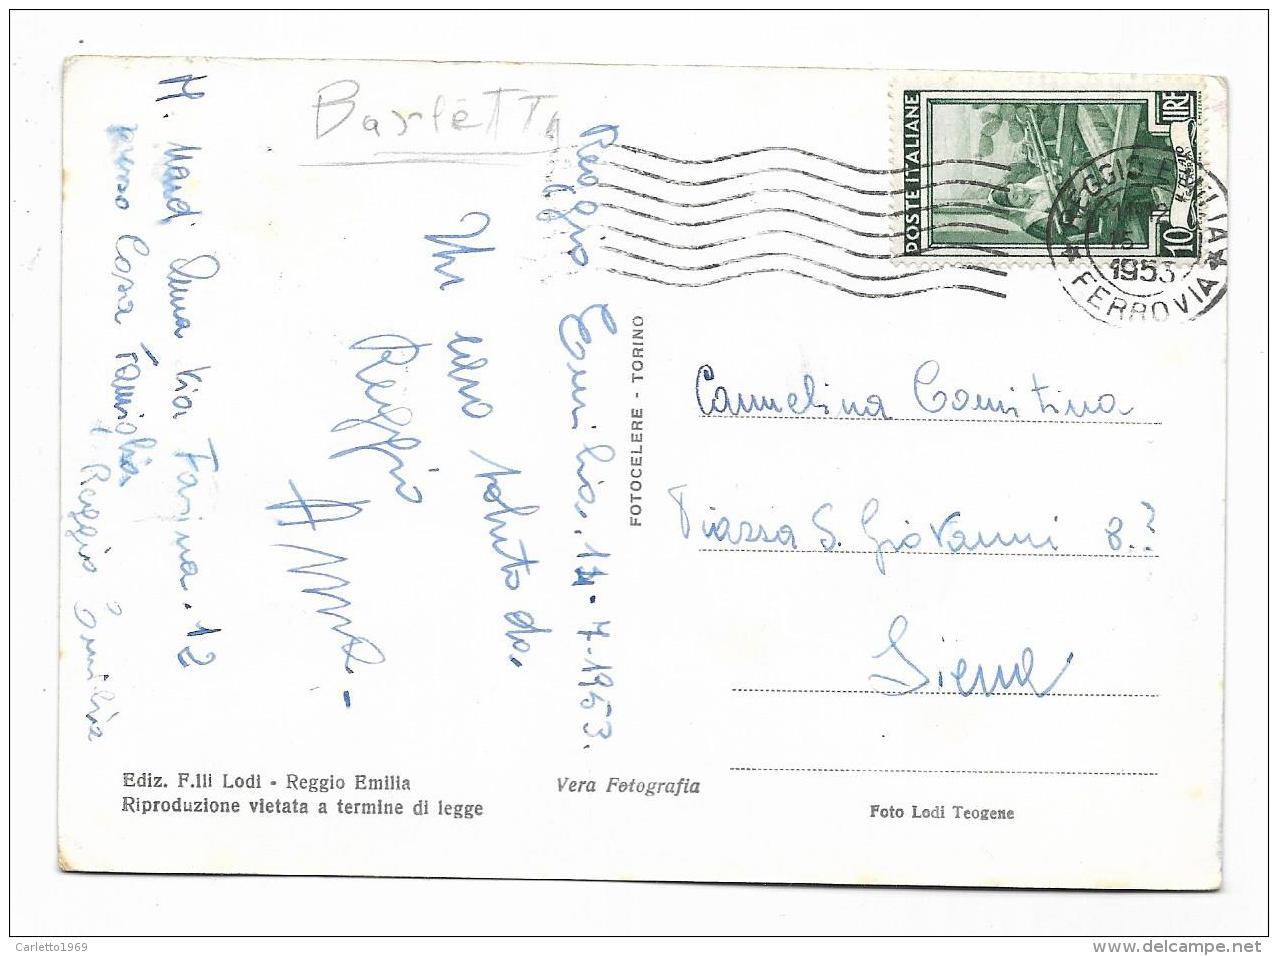 BarleTTa
Reggio Emilia. 14-7-1953.
Un caro saluto da
Reggio
Anna -
M. Anna Via Farina. 12
presso Casa Famiglia
Reggio Emilia
POSTE ITALIANE
LIRE
10
REGGIO EMILIA
1953
FERROVIA
FOTOCELERE - TORINO
Carmelina Comitina
Piazza S. Giovanni 8.?
Siena
Ediz. F.lli Lodi - Reggio Emilia
Riproduzione vietata a termine di legge
Vera Fotografia
Foto Lodi Teogene
Carletto1969
www.delcampe.net